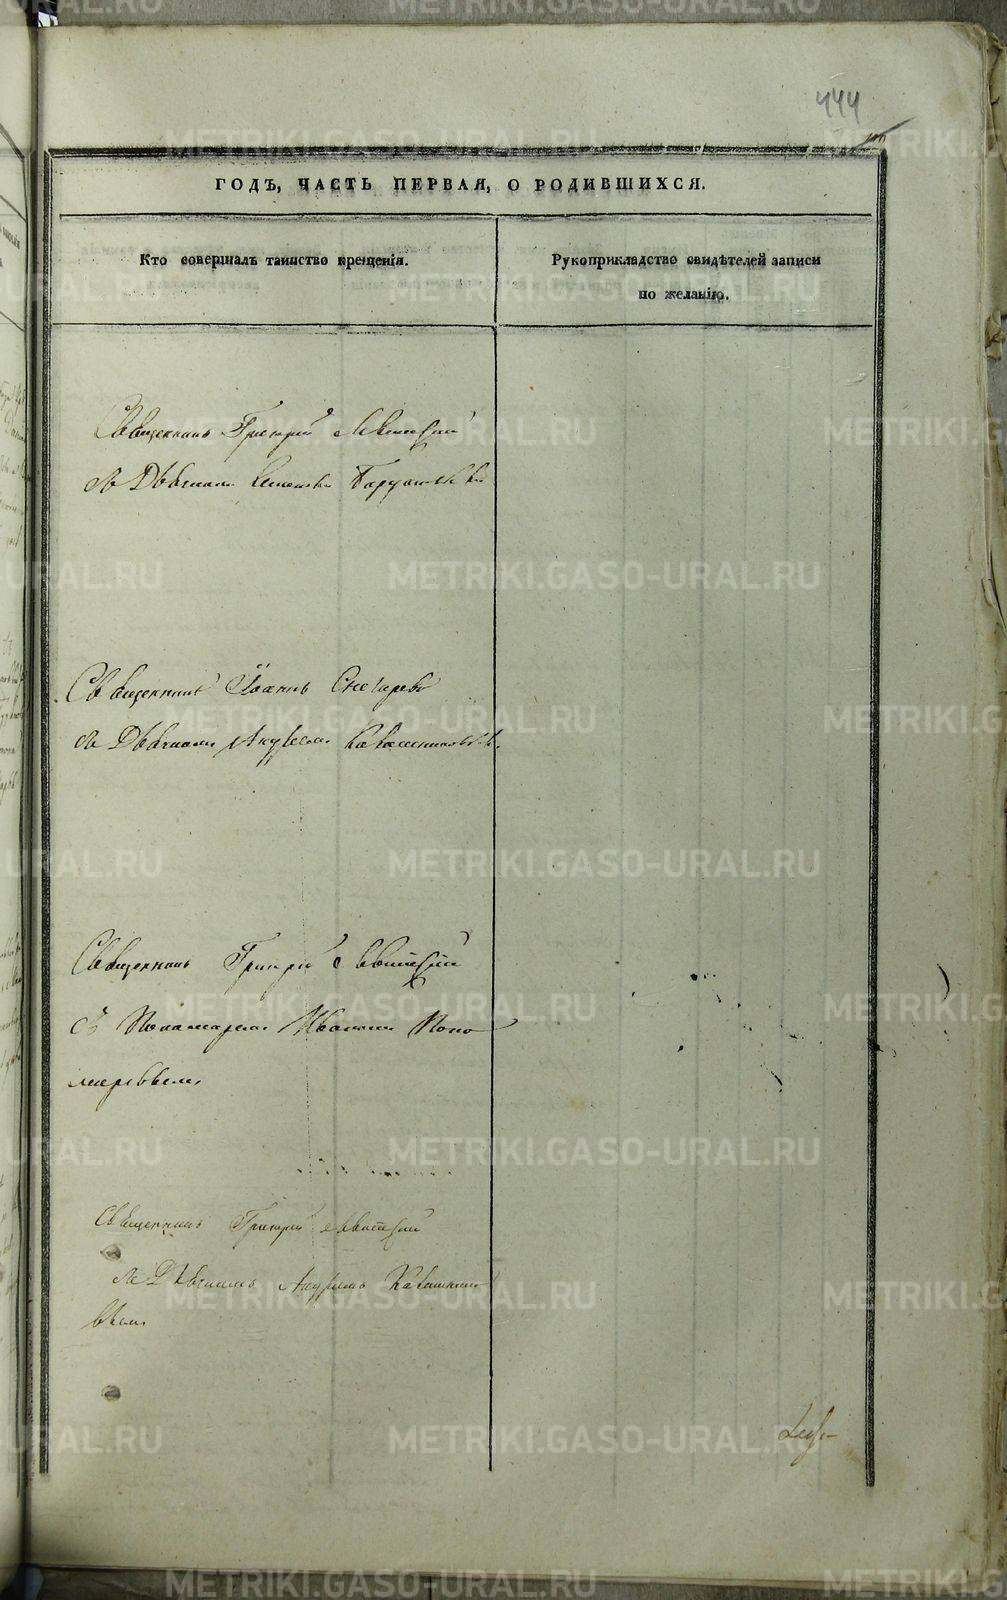 444
ГОДЪ, ЧАСТЬ ПЕРВАЯ, О РОДИВШИХСЯ.
Кто совершалъ таинство крещенія.
Рукоприкладство свидѣтелей записи
по желанію.
Священникъ Григорій Левитскій
съ Дьячкомъ
Священникъ Іоаннъ Снегиревъ
съ Дьячкомъ Андреемъ
Священникъ Григорій Левитскій
съ Пономаремъ Иваномъ Поно
маревымъ
Священникъ Григорій Левитскій
съ Дьячкомъ Андреемъ
METRIKI.GASO-URAL.RU